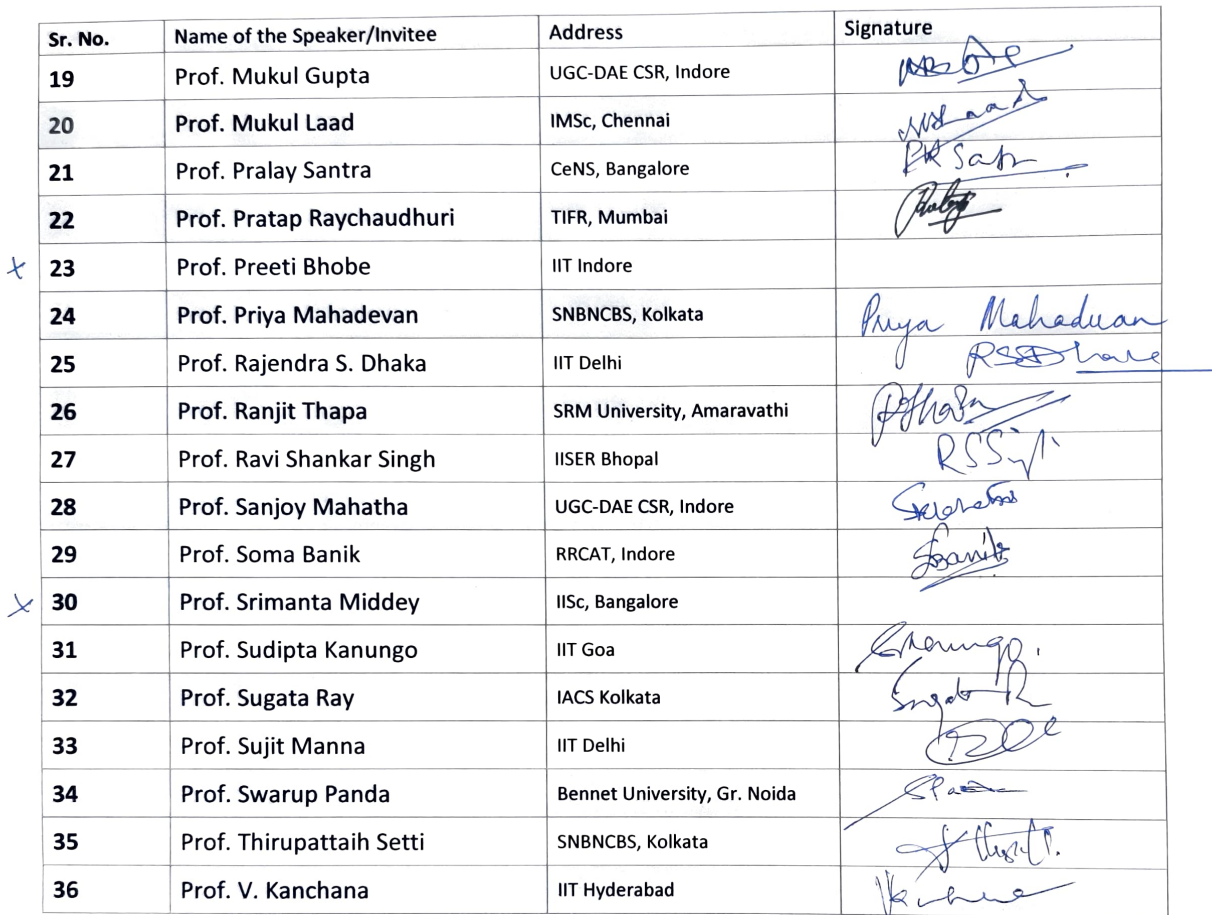 Sr. No. Name of the Speaker/Invitee Address Signature
19 Prof. Mukul Gupta UGC-DAE CSR, Indore
20 Prof. Mukul Laad IMSc, Chennai
21 Prof. Pralay Santra CeNS, Bangalore
22 Prof. Pratap Raychaudhuri TIFR, Mumbai
x 23 Prof. Preeti Bhobe IIT Indore
24 Prof. Priya Mahadevan SNBNCBS, Kolkata Priya Mahadevan
25 Prof. Rajendra S. Dhaka IIT Delhi
26 Prof. Ranjit Thapa SRM University, Amaravathi
27 Prof. Ravi Shankar Singh IISER Bhopal
28 Prof. Sanjoy Mahatha UGC-DAE CSR, Indore
29 Prof. Soma Banik RRCAT, Indore SBanik
x 30 Prof. Srimanta Middey IISc, Bangalore
31 Prof. Sudipta Kanungo IIT Goa
32 Prof. Sugata Ray IACS Kolkata
33 Prof. Sujit Manna IIT Delhi
34 Prof. Swarup Panda Bennet University, Gr. Noida
35 Prof. Thirupattaih Setti SNBNCBS, Kolkata
36 Prof. V. Kanchana IIT Hyderabad